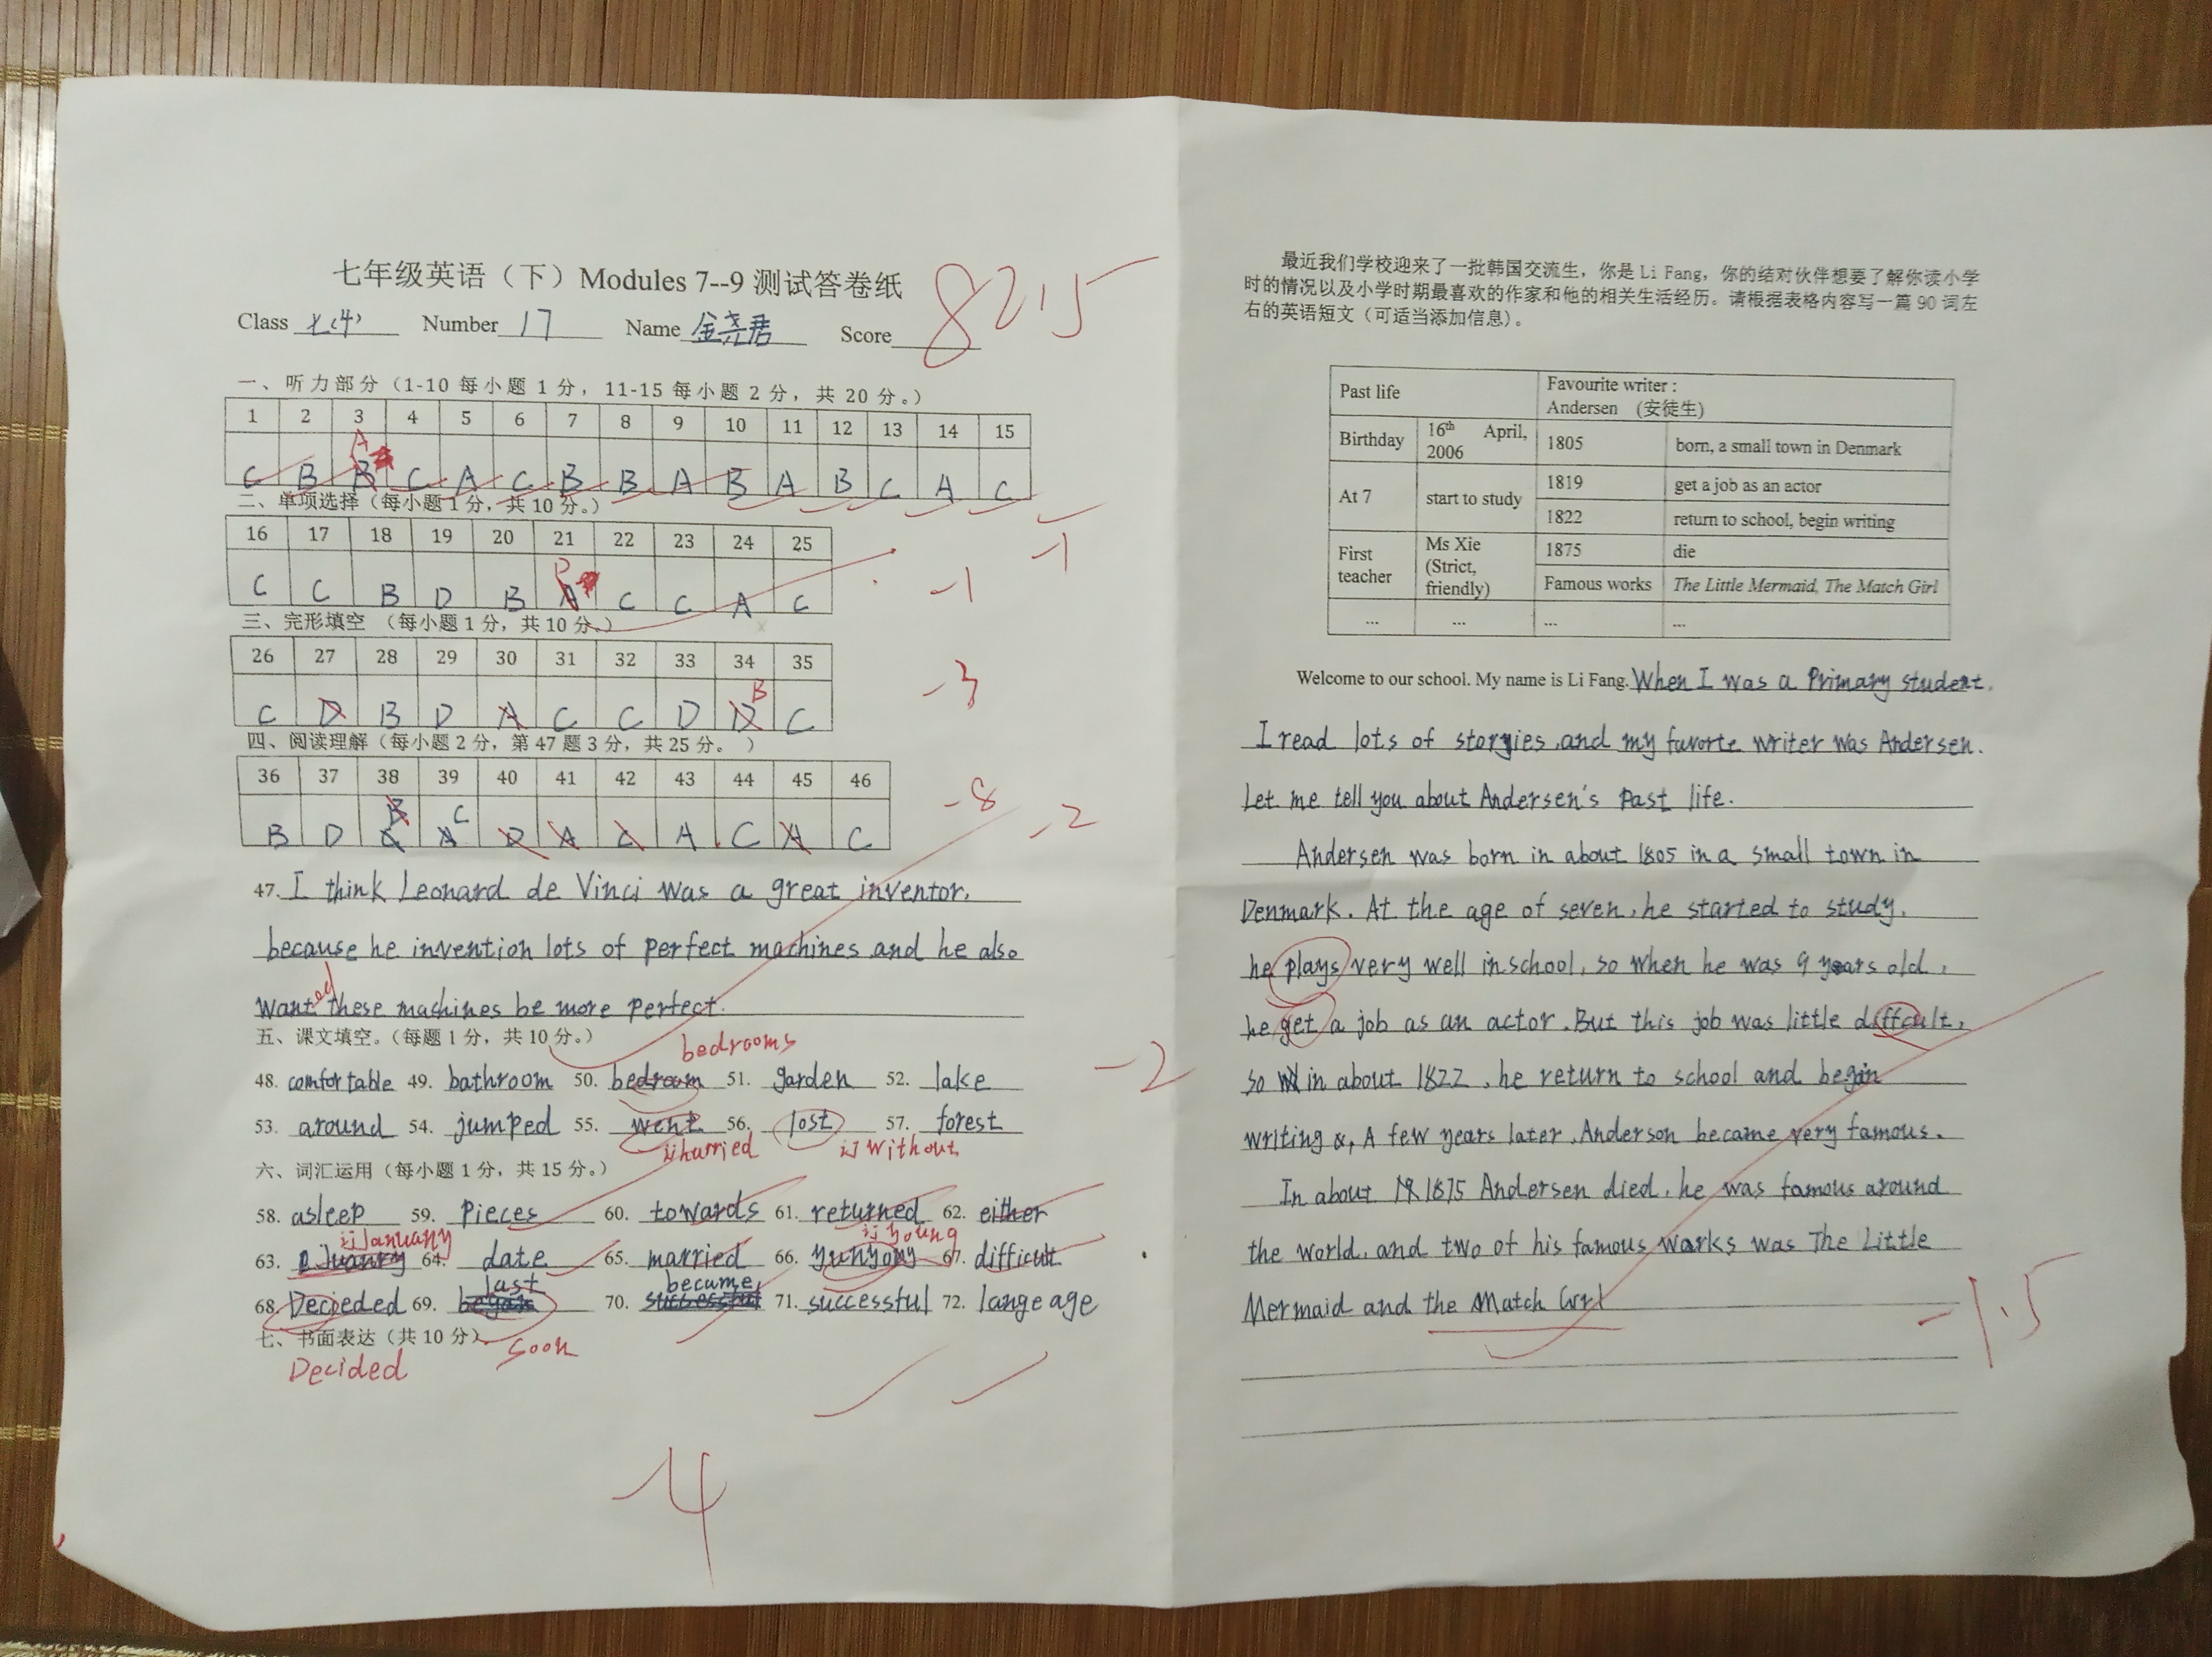 七年级英语（下）Modules 7--9 测试答卷纸
8215
Class 七(4) Number 17 Name 金尧君 Score
一、听力部分（1-10 每小题 1 分，11-15 每小题 2 分，共 20 分。）
1 2 3 4 5 6 7 8 9 10 11 12 13 14 15
A
C B B C A C B B A B A B C A C
二、单项选择（每小题 1 分，共 10 分。）
-1
16 17 18 19 20 21 22 23 24 25
-1
C C B D B A C C A C
三、完形填空 （每小题 1 分，共 10 分。）
26 27 28 29 30 31 32 33 34 35
-3
B
C D B D A C C D D C
四、阅读理解（每小题 2 分，第 47 题 3 分，共 25 分。 ）
36 37 38 39 40 41 42 43 44 45 46
-8
-2
B C
B D A D A C A C A C
47. I think Leonard de Vinci was a great inventor,
because he invention lots of perfect machines and he also
wanted these machines be more perfect.
五、课文填空。（每题 1 分，共 10 分。）
bedrooms
48. comfortable 49. bathroom 50. bedroom 51. garden 52. lake
-2
53. around 54. jumped 55. went 56. lost 57. forest
hurried without
六、词汇运用（每小题 1 分，共 15 分。）
58. asleep 59. pieces 60. towards 61. returned 62. either
January young
63. 64. date 65. married 66. 67. difficult
last became
68. Decieded 69. began 70. successful 71. successful 72. langeage
七、书面表达（共 10 分）
soon
Decided
-4
最近我们学校迎来了一批韩国交流生，你是 Li Fang，你的结对伙伴想要了解你读小学
时的情况以及小学时期最喜欢的作家和他的相关生活经历。请根据表格内容写一篇 90 词左
右的英语短文（可适当添加信息）。
Past life Favourite writer :
Andersen （安徒生）
Birthday 16th April, 2006 1805 born, a small town in Denmark
At 7 start to study 1819 get a job as an actor
1822 return to school, begin writing
First teacher Ms Xie (Strict, friendly) 1875 die
Famous works The Little Mermaid, The Match Girl
... ... ... ...
Welcome to our school. My name is Li Fang. When I was a Primary student,
I read lots of storyies, and my favorte writer was Andersen.
Let me tell you about Andersen's Past life.
Andersen was born in about 1805 in a small town in
Denmark. At the age of seven, he started to study,
he plays very well in school, so when he was 9 years old,
he get a job as an actor. But this job was little diffcult,
so in about 1822, he return to school and begin
writing, A few years later, Anderson became very famous.
In about 1875 Andersen died, he was famous around
the world, and two of his famous works was The Little
Mermaid and the Match Girl
-1.5